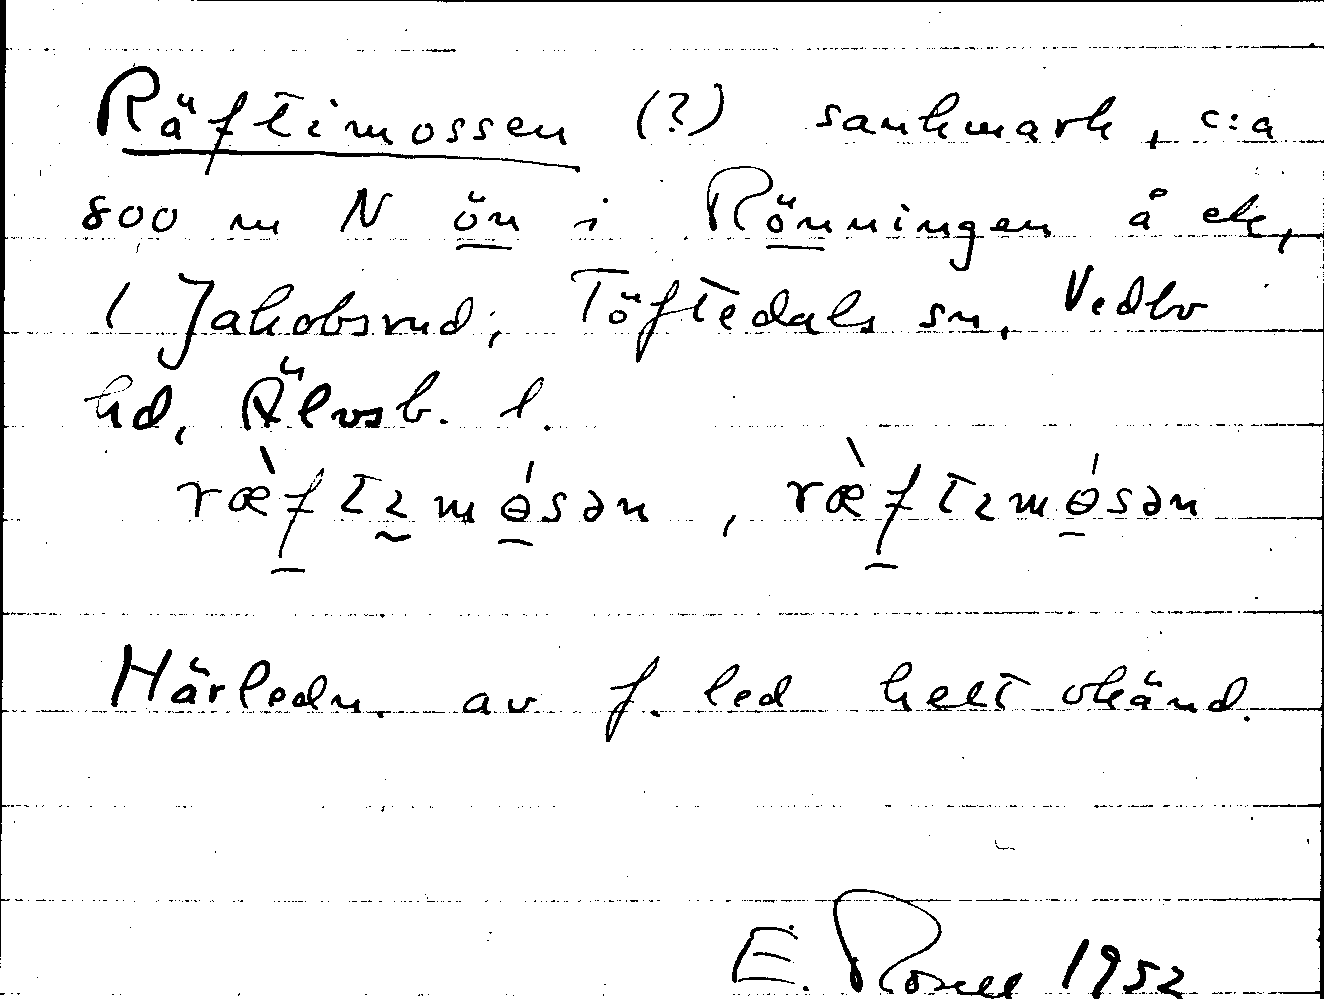 Räftimossen (?) sankmark, c:a
800 m N ön i Rönningen å ek,
1 Jakobsrud; Töftedals sn, Vedbo
hd, Älvsb. l.
ræ̀ftɩmɵ́sən, ræ̀ftɩmɵ́sən
Härledn. av f. led helt okänd.
E. Rosell 1952